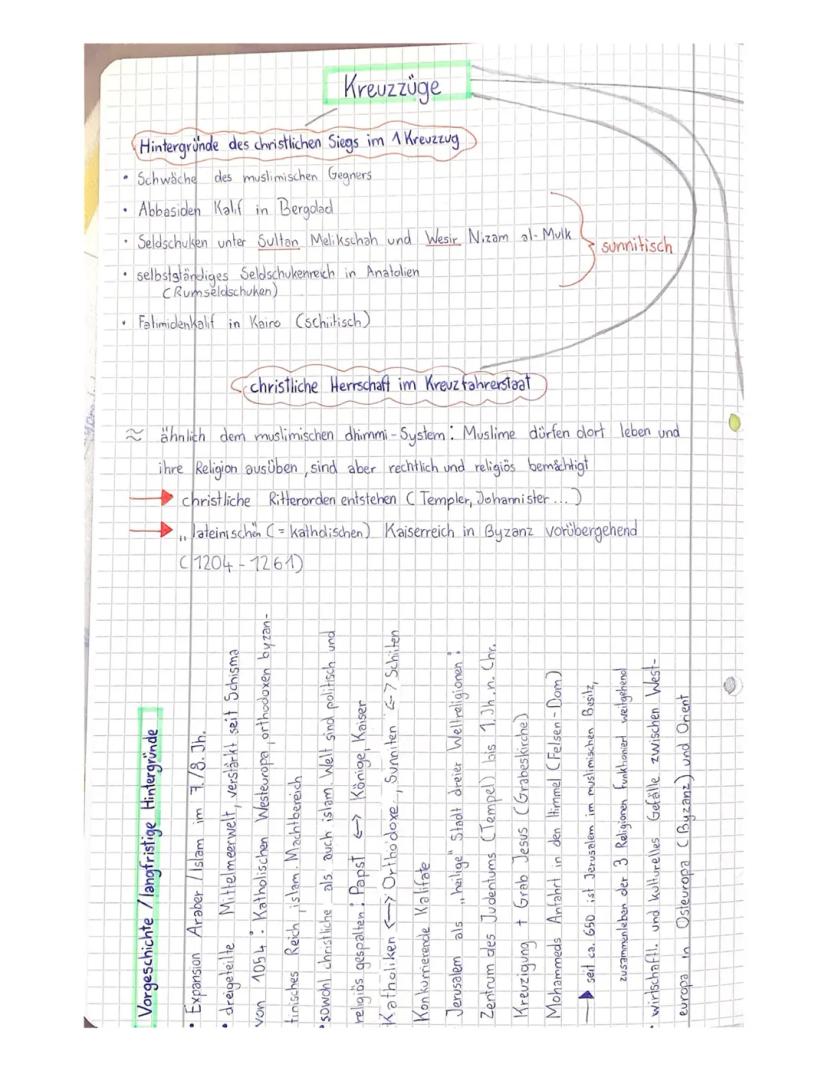 Kreuzzüge
Hintergründe des christlichen Siegs im 1 Kreuzzug
• Schwäche des muslimischen Gegners
• Abbasiden Kalif in Bergdad
• Seldschuken unter Sultan Melikschah und Wesir Nizam al-Mulk
sunnitisch
• selbstständiges Seldschukenreich in Anatolien
(Rumseldschuken)
• Fatimidenkalif in Kairo (schiitisch)
christliche Herrschaft im Kreuzfahrerstaat
≈ ähnlich dem muslimischen dhimmi-System: Muslime dürfen dort leben und
ihre Religion ausüben, sind aber rechtlich und religiös bemächtigt
→ christliche Ritterorden entstehen (Templer, Johanniter...)
→ „lateinischen (= katholischen) Kaiserreich in Byzanz vorübergehend
(1204 - 1261)
Vorgeschichte / langfristige Hintergründe
• Expansion Araber / Islam im 7./8. Jh.
• dreigeteilte Mittelmeerwelt, verstärkt seit Schisma
von 1054: Katholischen Westeuropa, orthodoxen byzan-
tinisches Reich, islam. Machtbereich
• sowohl christliche als auch islam. Welt sind politisch und
religiös gespalten: Papst <-> Könige, Kaiser
Katholiken <-> Orthodoxe, Sunniten <-> Schiiten
Konkurrierende Kalifate
Jerusalem als „heilige" Stadt dreier Weltreligionen:
Zentrum des Judentums (Tempel) bis 1. Jh. n. Chr.
Kreuzigung + Grab Jesus (Grabeskirche)
Mohammeds Anfahrt in den Himmel (Felsen-Dom)
→ seit ca. 650 ist Jerusalem im muslimischen Besitz,
zusammenleben der 3 Religionen funktioniert weitgehend
• wirtschaftl. und kulturelles Gefälle zwischen West-
europa in Osteuropa (Byzanz) und Orient